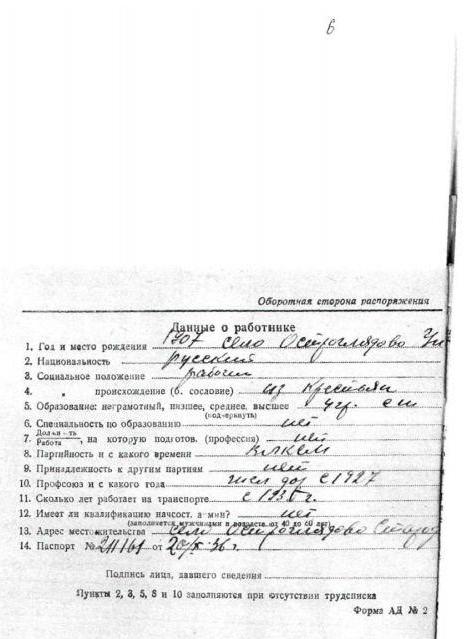 6
Оборотная сторона распоряжения
Данные о работнике
1. Год и место рождения 1907 село Остроглядово
2. Национальность русский
3. Социальное положение рабочий
4. „ происхождение (б. сословие) из крестьян
5. Образование: неграмотный, низшее, среднее, высшее 4 гр.
(подчеркнуть)
6. Специальность по образованию нет
7. Должн-ть
Работа, на которую подготов. (профессия) нет
8. Партийность и с какого времени ВЛКСМ
9. Принадлежность к другим партиям нет
10. Профсоюз и с какого года с 1927
11. Сколько лет работает на транспорте с 1935 г.
12. Имеет ли квалификацию начсост. а мин? нет
(заполняется мужчинами в возрасте от 40 до 60 лет)
13. Адрес местожительства село Остроглядово
14. Паспорт № от 36 г.
Подпись лица, давшего сведения
Пункты 2, 3, 5, 8 и 10 заполняются при отсутствии трудсписка
Форма АД № 2